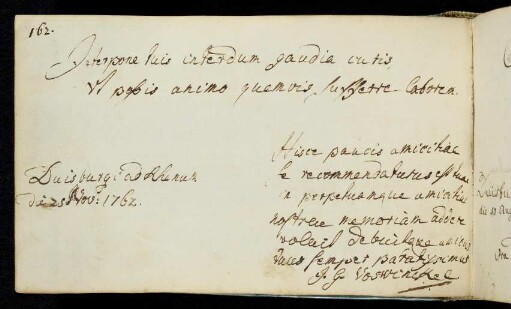 162.
Interpone tuis interdum gaudia curis
Ut possis animo quemvis sufferre laborem.
Duisburgi ad Rhenum
d. 25 Nov. 1762.
Hisce paucis amicitiae
se recommendaturus
in perpetuamque amicitiae
nostrae memoriam adder
voluit debuitque
tuus semper paratissimus
J. G. Voswinckel